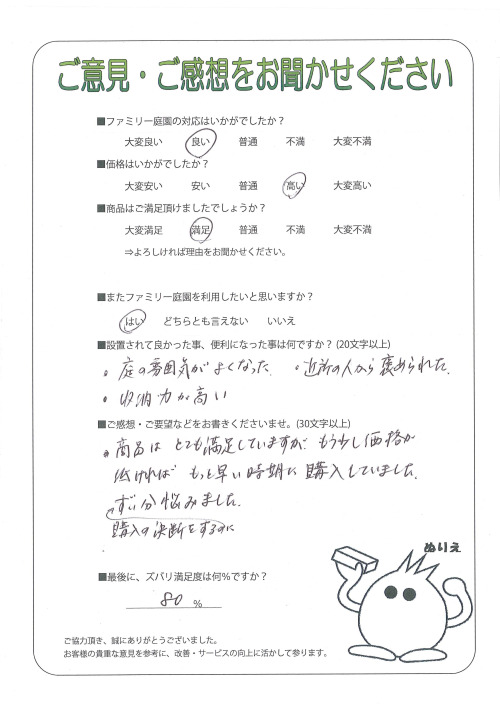 ご意見・ご感想をお聞かせください
■ファミリー庭園の対応はいかがでしたか？
大変良い 良い 普通 不満 大変不満
■価格はいかがでしたか？
大変安い 安い 普通 高い 大変高い
■商品はご満足頂けましたでしょうか？
大変満足 満足 普通 不満 大変不満
⇒よろしければ理由をお聞かせください。
■またファミリー庭園を利用したいと思いますか？
はい どちらとも言えない いいえ
■設置されて良かった事、便利になった事は何ですか？(20文字以上)
。庭の雰囲気がよくなった。 。近所の人から褒められた。
。収納力が高い
■ご感想・ご要望などをお書きくださいませ。(30文字以上)
。商品は とても満足していますが、もう少し価格が
ければ もっと早い時期に購入していました。
ずい分悩みました。
購入の決断をするのに
ぬりえ
■最後に、ズバリ満足度は何%ですか？
80 %
ご協力頂き、誠にありがとうございました。
お客様の貴重な意見を参考に、改善・サービスの向上に活かして参ります。